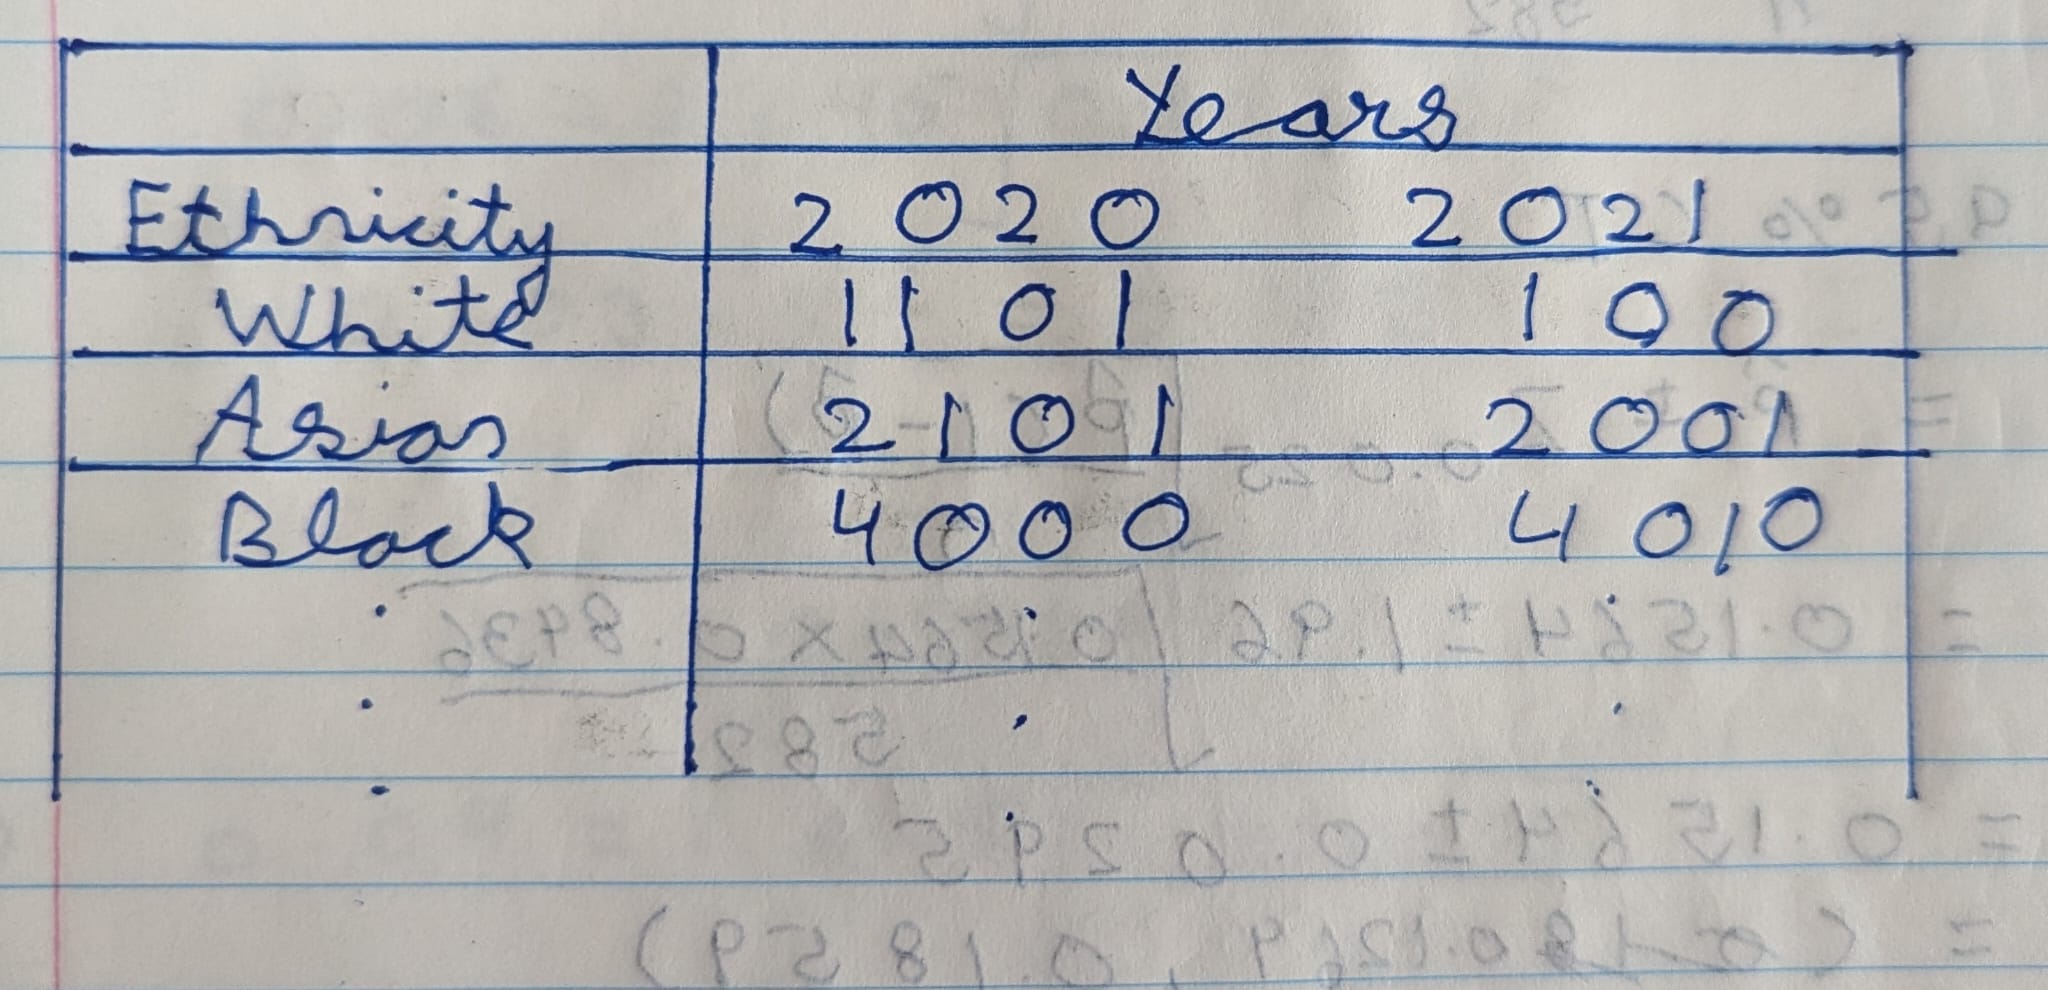 Years
Ethnicity 2020 2021
White 1101 100
Asian 2101 2001
Black 4000 4010
. . .
. . .
. . .